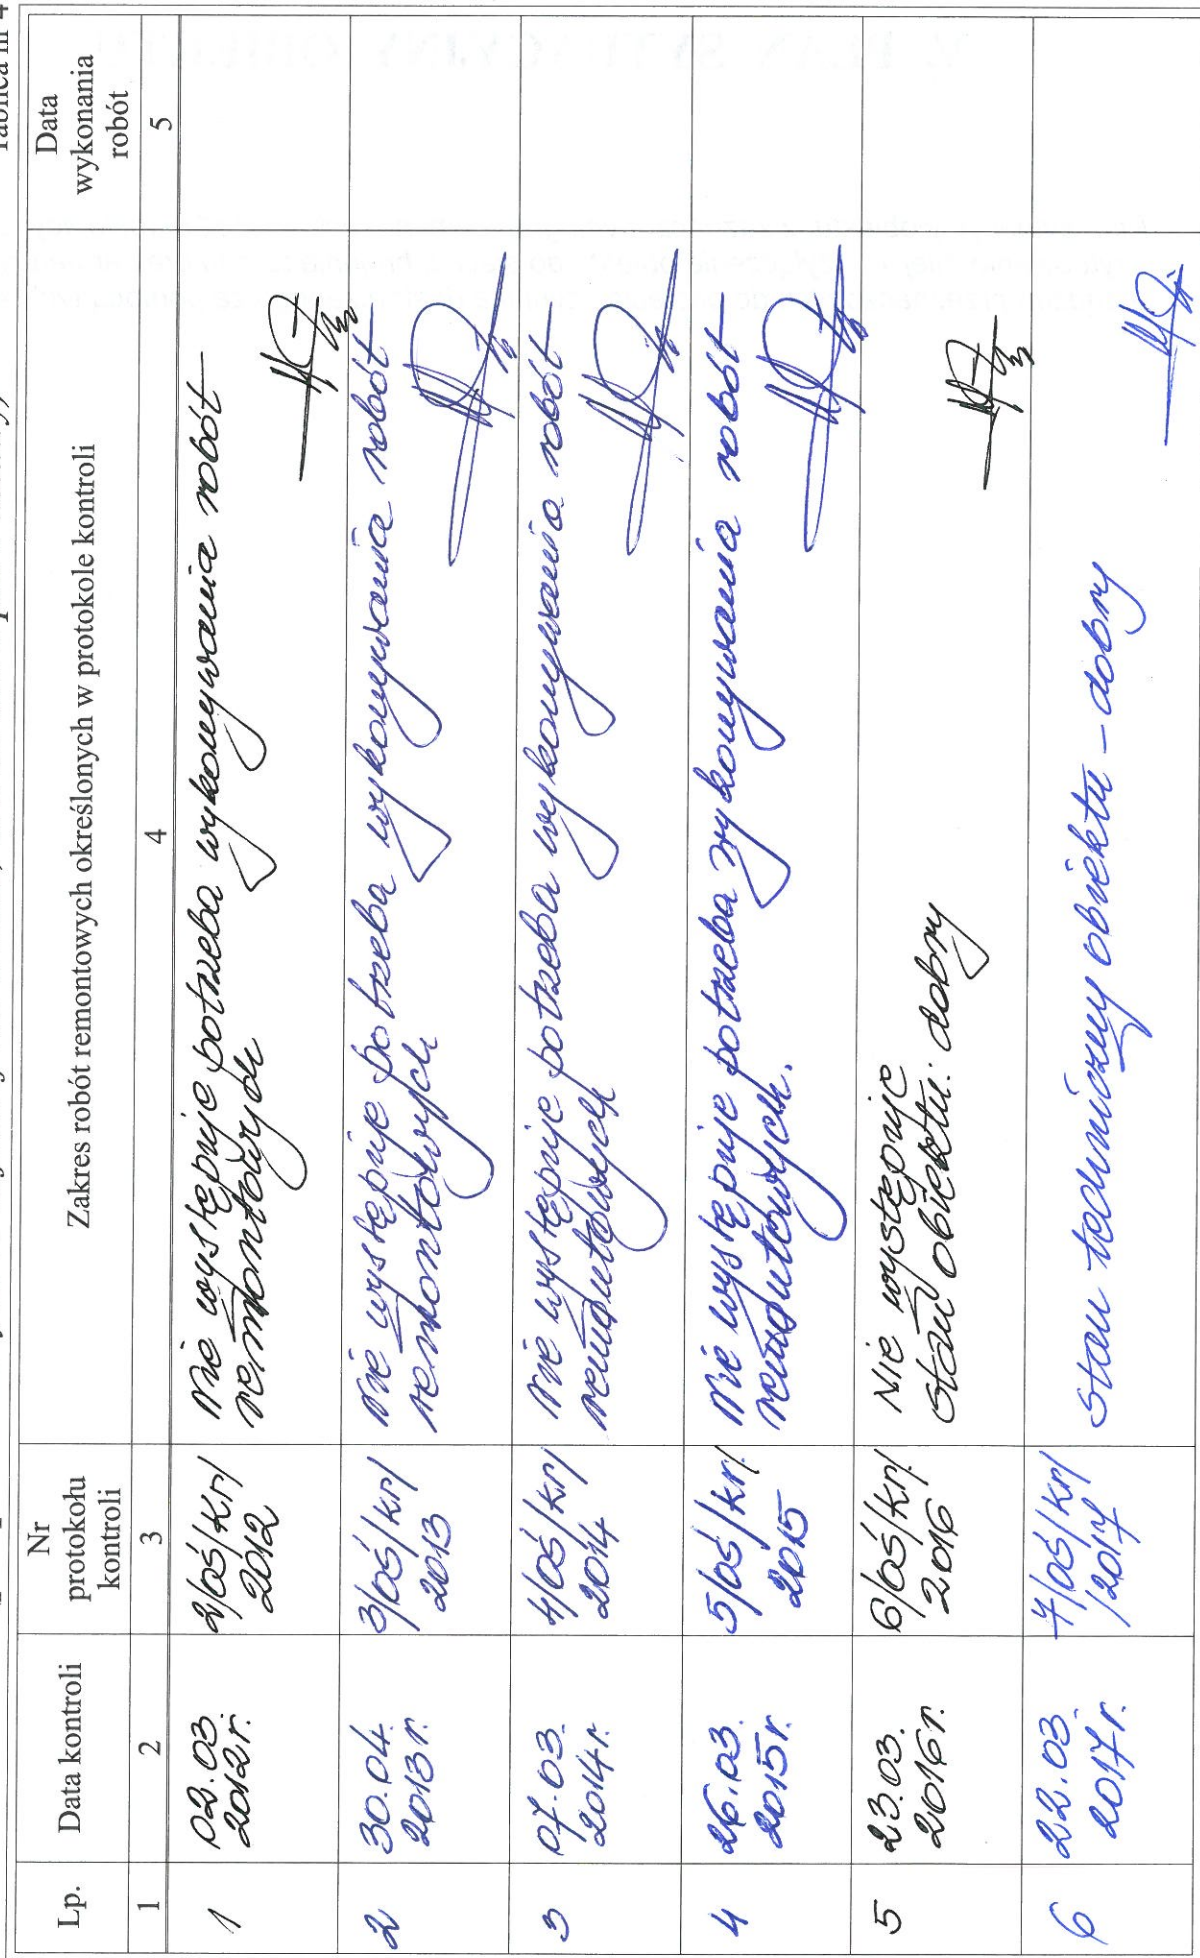 Tablica nr 4
Lp.
Data kontroli
Nr
protokołu
kontroli
Zakres robót remontowych określonych w protokole kontroli
Data
wykonania
robót
1
2
3
4
5
1
02.03.
2012r.
2/OŚ/Kr/
2012
nie występuje potrzeba wykonywania robót
remontowych
2
30.04.
2013r.
3/OŚ/Kr/
2013
nie występuje potrzeba wykonywania robót
remontowych
3
07.03.
2014r.
4/OŚ/Kr/
2014
nie występuje potrzeba wykonywania robót
remontowych
4
26.03.
2015r.
5/OŚ/Kr/
2015
nie występuje potrzeba wykonywania robót
remontowych.
5
23.03.
2016r.
6/OŚ/Kr/
2016
Nie występuje
stan obiektu: dobry
6
22.03.
2017r.
7/OŚ/Kr/
/2017
stan techniczny obiektu – dobry